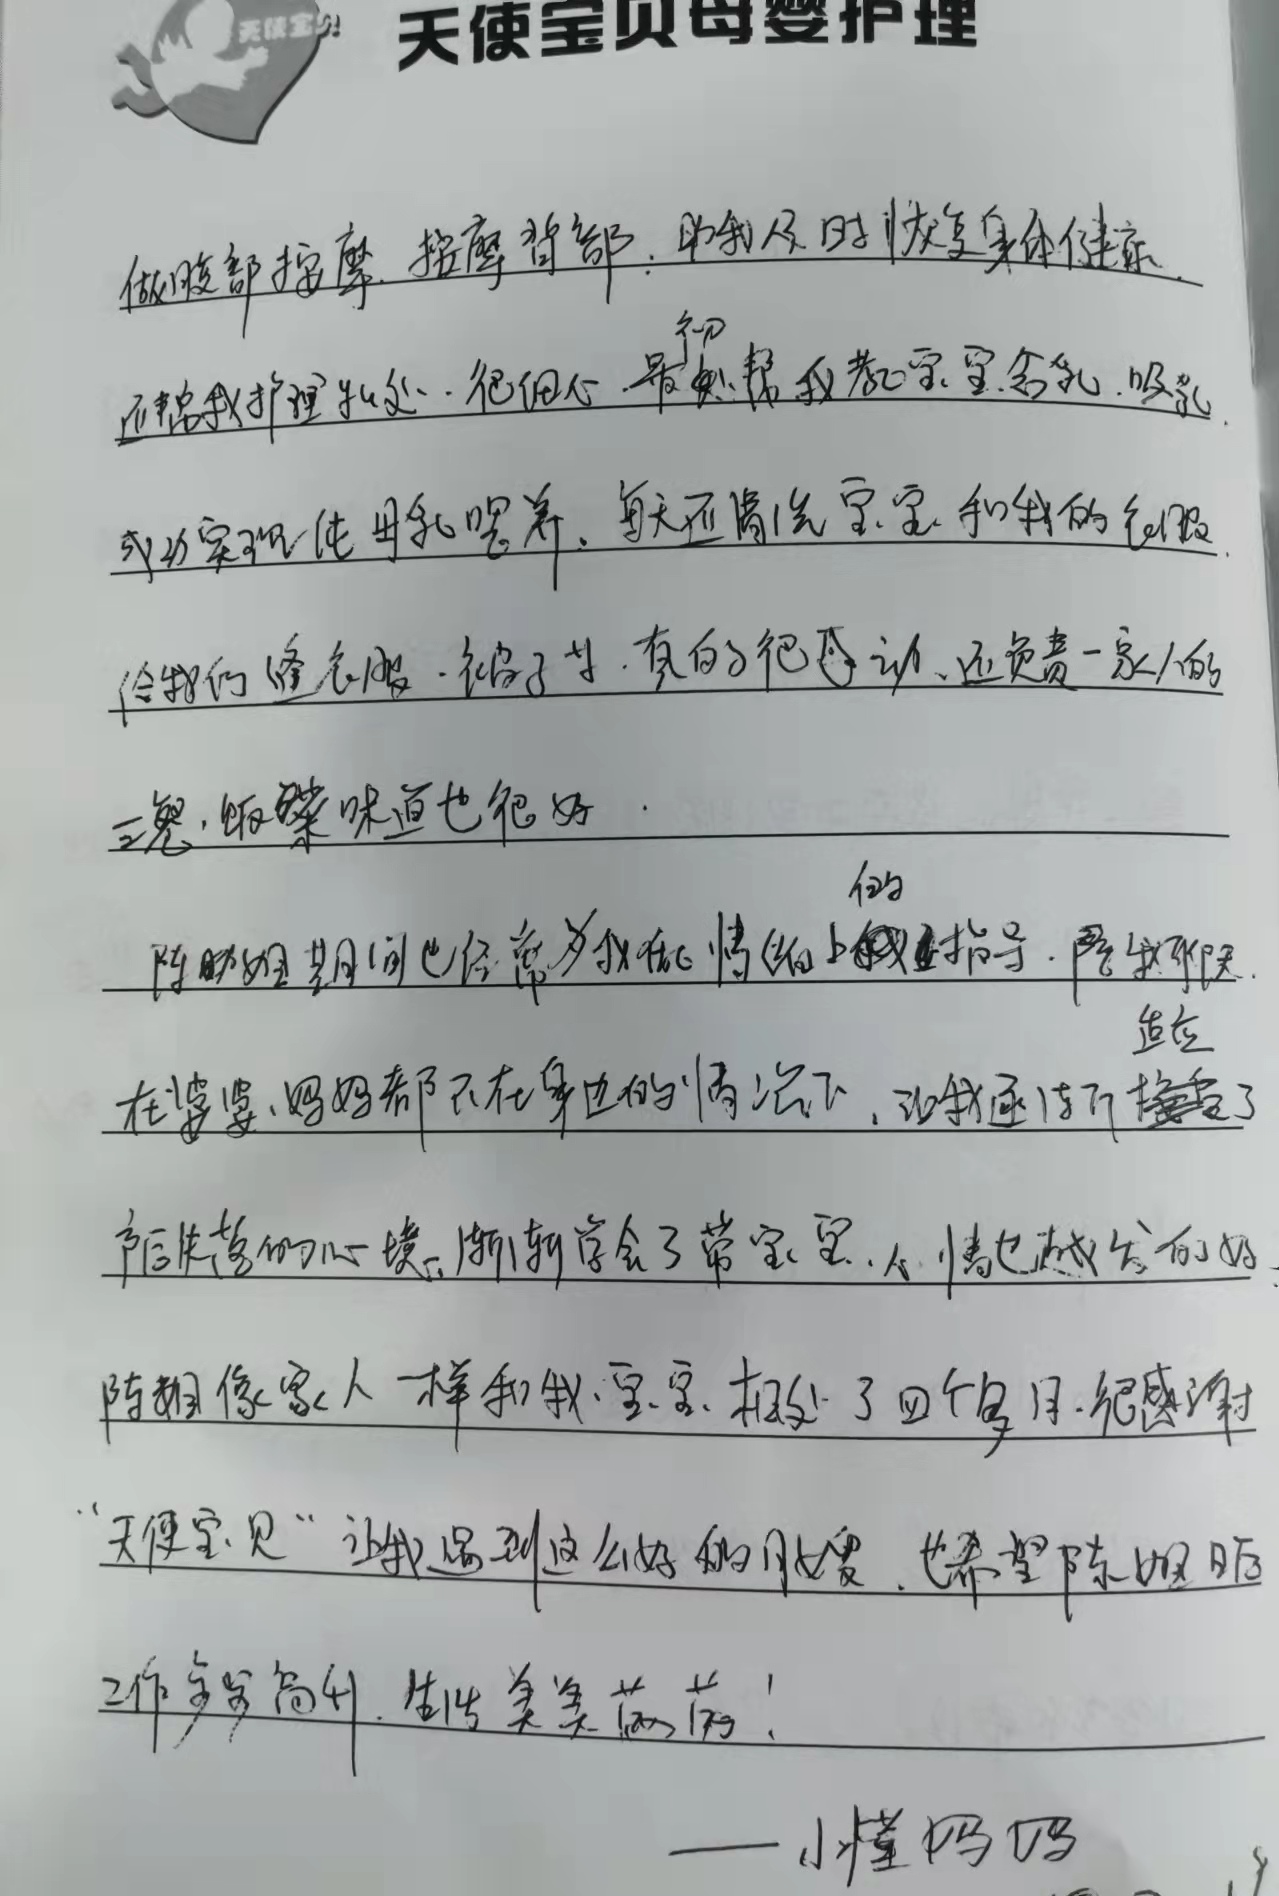 天使宝贝
天使宝贝母婴护理
做腹部按摩、按摩背部，助我及时恢复身体健康、
还帮我护理私处、很细心、最初帮我教宝宝含乳、吸乳、
成功实现纯母乳喂养、每天还清洗宝宝和我的衣服、
给我们缝衣服、被子等、真的很感动、还负责一家人的
三餐、饭菜味道也很好.
陈姐期间也经常为我在情绪上的指导、陪我聊天、
在婆婆、妈妈都不在身边的情况下、让我逐渐适应了
产后失落的心境、渐渐学会了带宝宝、心情也越发的好、
陈姐像家人一样和我、宝宝、相处了四个多月、很感谢
“天使宝贝”让我遇到这么好的月嫂、也希望陈姐日后
工作步步高升、生活美美满满！
——小懂妈妈